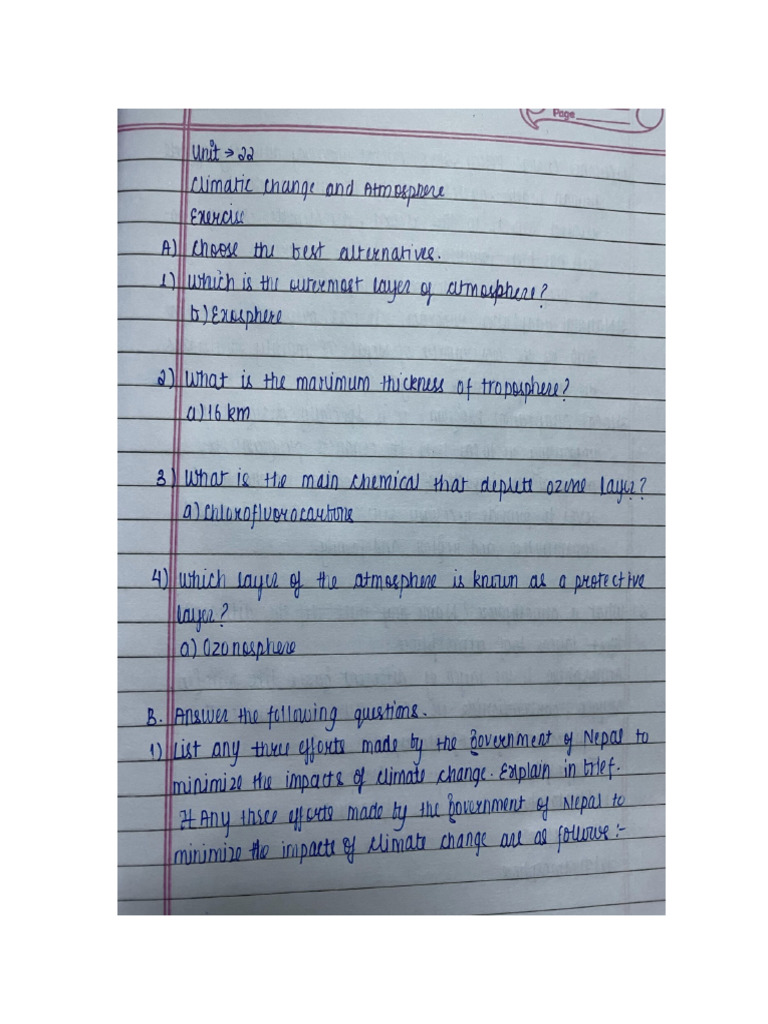 Page
Unit → 22
Climatic change and Atmosphere
Exercise
A) Choose the best alternatives.
1) Which is the outermost layer of atmosphere?
b) Exosphere
2) What is the maximum thickness of troposphere?
a) 16 km
3) What is the main chemical that deplete ozone layer?
a) Chlorofluorocarbons
4) Which layer of the atmosphere is known as a protective
layer?
a) Ozonosphere
B. Answer the following questions.
1) List any three efforts made by the Government of Nepal to
minimize the impacts of climate change. Explain in brief.
Any three efforts made by the Government of Nepal to
minimize the impacts of climate change are as follows :-